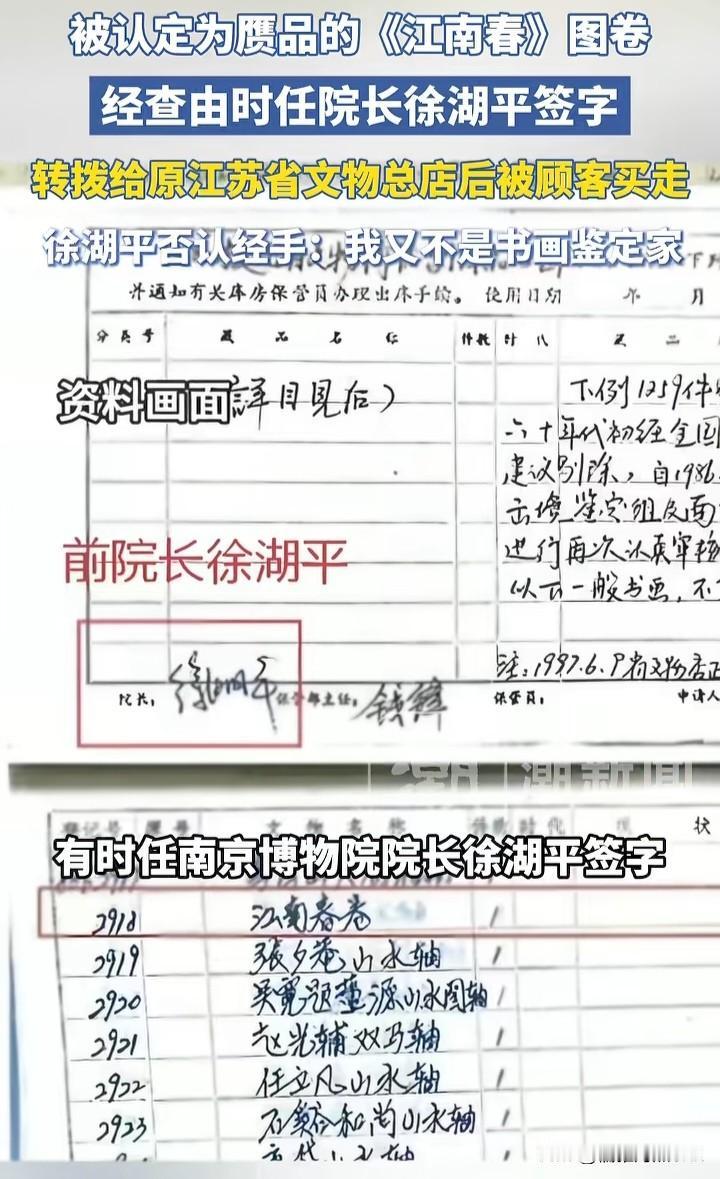 被认定为赝品的《江南春》图卷
经查由时任院长徐湖平签字
转拨给原江苏省文物总店后被顾客买走
徐湖平否认经手：我又不是书画鉴定家
并通知有关库房保管员办理出库手续。 使用日期 年 月
分类号 藏品名称 件数 时代
资料画面
详目见后）
下例1259件
六十年代初经全国
建议剔除，自1986.
鉴定组反面
进行再次认真审核
以云一般书画，不
前院长徐湖平
注：1997.6.9省文物
院长： 徐湖平 保管部主任： 钱锋 保管员： 申请人
潮新闻
登记号 文物名称 件数 时代 现 状
有时任南京博物院院长徐湖平签字
2918 江南春卷 1
2919 张夕菴山水轴 1
2920 吴霓题董源山水图轴 1
2921 赵光辅双马轴 1
2922 任立凡山水轴 1
2923 石谿和尚山水轴 1